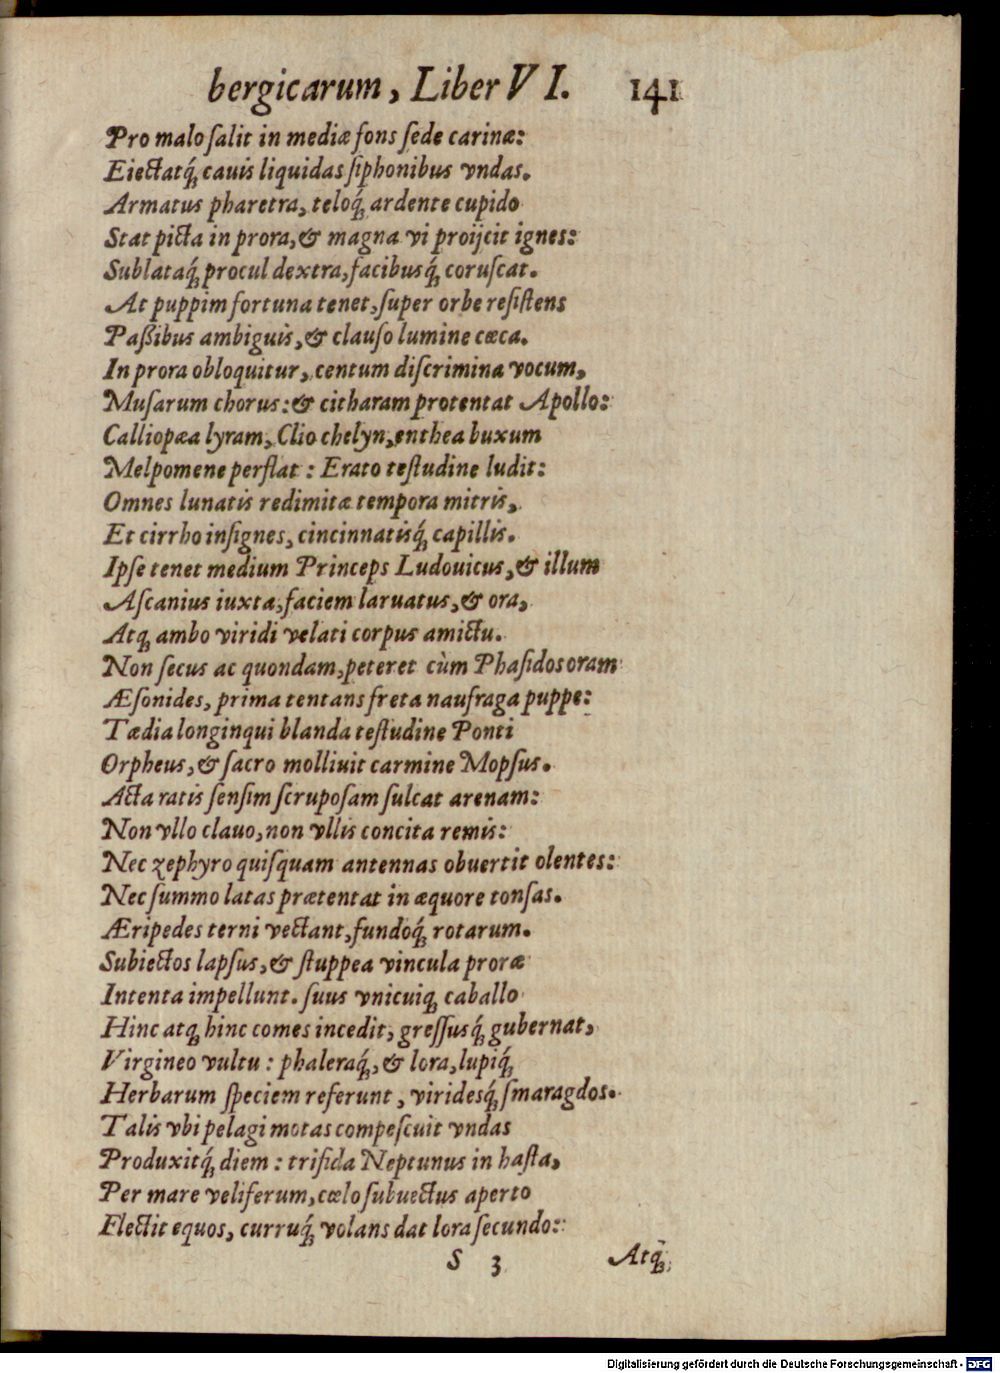 bergicarum, Liber VI. 141
Pro malo ſalit in mediæ fons ſede carinæ:
Eiectatq́; cauis liquidas ſiphonibus vndas.
Armatus pharetra, teloq́; ardente cupido
Stat picta in prora, & magna vi proijcit ignes:
Sublataq́; procul dextra, facibusq́; coruſcat.
At puppim fortuna tenet, ſuper orbe reſiſtens
Paßibus ambiguis, & clauſo lumine cæca.
In prora obloquitur, centum diſcrimina vocum,
Muſarum chorus: & citharam protentat Apollo:
Calliopæa lyram, Clio chelyn, enthea buxum
Melpomene perflat: Erato teſtudine ludit:
Omnes lunatis redimitæ tempora mitris,
Et cirrho inſignes, cincinnatisq́; capillis.
Ipſe tenet medium Princeps Ludouicus, & illum
Aſcanius iuxta, faciem laruatus, & ora,
Atq; ambo viridi velati corpus amictu.
Non ſecus ac quondam, peteret cùm Phaſidos oram
Æſonides, prima tentans freta naufraga puppe:
Tædia longinqui blanda teſtudine Ponti
Orpheus, & ſacro molliuit carmine Mopſus.
Acta ratis ſenſim ſcrupoſam ſulcat arenam:
Non vllo clauo, non vllis concita remis:
Nec zephyro quiſquam antennas obuertit olentes:
Nec ſummo latas prætentat in æquore tonſas.
Æripedes terni vectant, fundoq́; rotarum.
Subiectos lapſus, & ſtuppea vincula proræ
Intenta impellunt. ſuus vnicuiq; caballo
Hinc atq; hinc comes incedit, greſſusq́; gubernat,
Virgineo vultu: phaleraq́;, & lora, lupiq́;
Herbarum ſpeciem referunt, viridesq́; ſmaragdos.
Talis vbi pelagi motas compeſcuit vndas
Produxitq́; diem: trifida Neptunus in haſta,
Per mare veliferum, cœlo ſubuectus aperto
Flectit equos, curruq́; volans dat lora ſecundo:
S 3 Atq́;
Digitalisierung gefördert durch die Deutsche Forschungsgemeinschaft - DFG